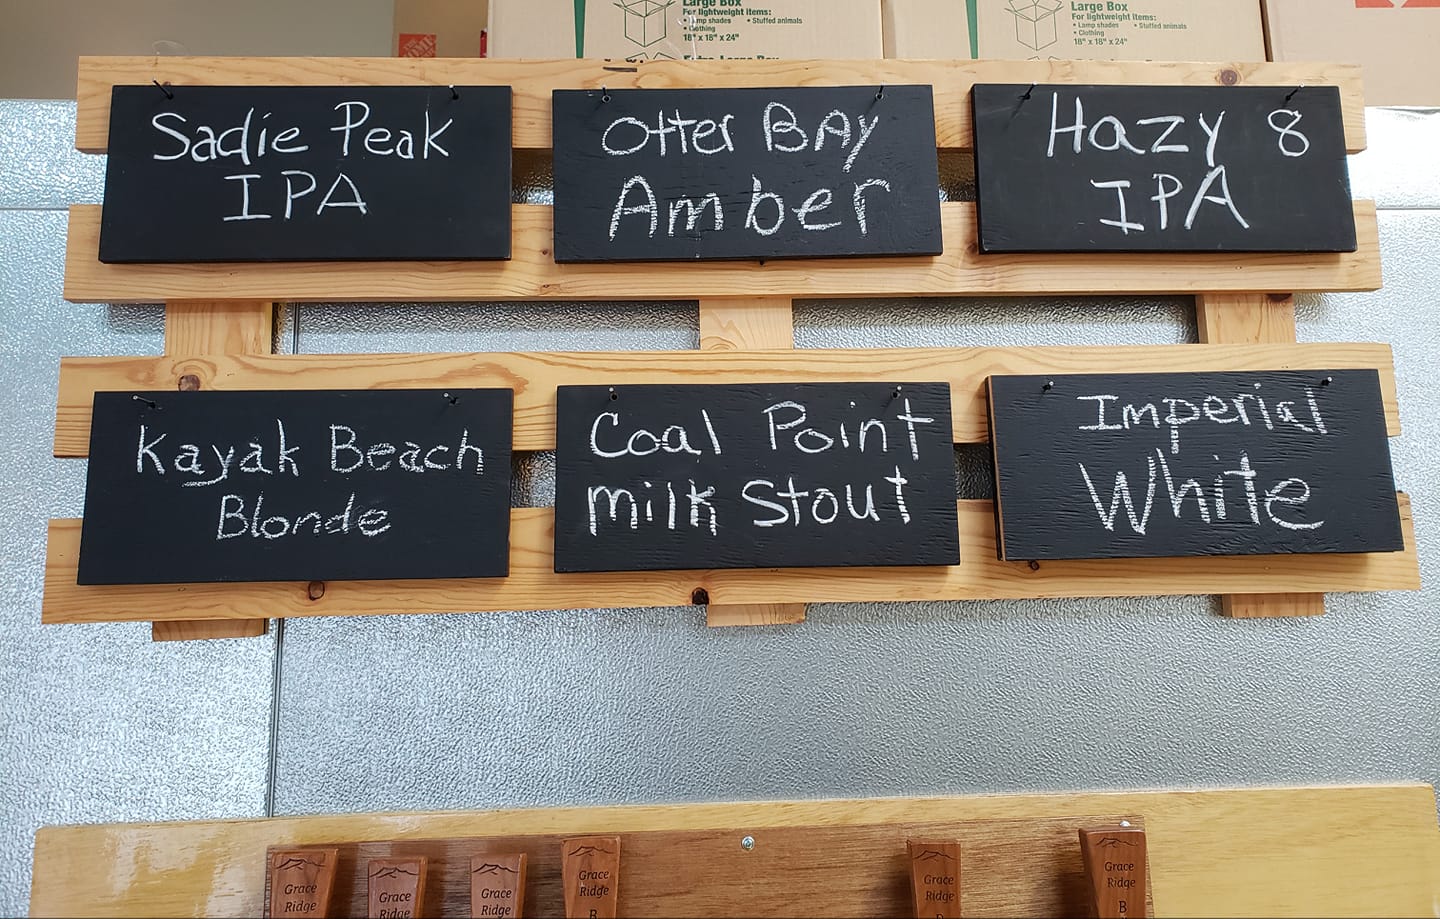 Large Box
For lightweight items:
• Lamp shades • Stuffed animals
• Clothing
18" x 18" x 24"
Large Box
For lightweight items:
• Lamp shades • Stuffed animals
• Clothing
18" x 18" x 24"
Sadie Peak
IPA
Otter BAy
Amber
Hazy 8
IPA
Kayak Beach
Blonde
Coal Point
milk Stout
Imperial
White
Grace
Ridge
Grace
Ridge
Grace
Ridge
Grace
Ridge
B
Grace
Ridge
Grace
Ridge
B